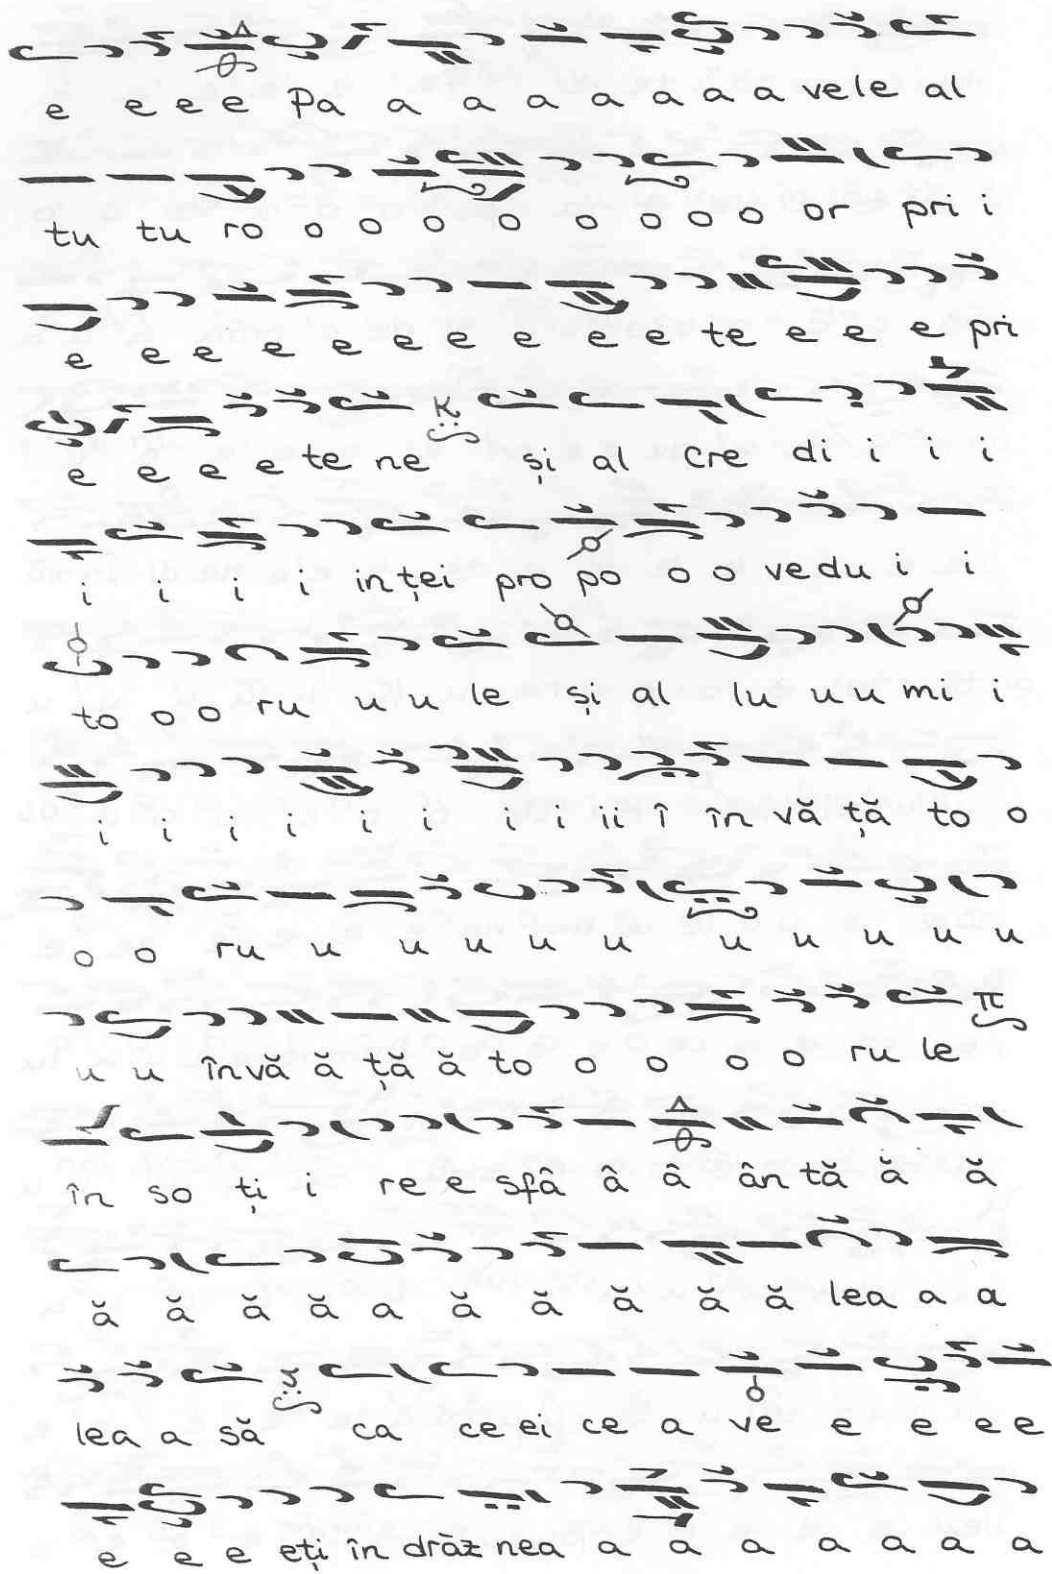 e e e e Pa a a a a a a a vele al
tu tu ro o o o o o o o o or pri i
e e e e e e e e e e te e e e pri
e e e e te ne și al cre di i i i
i i i i in ței pro po o o vedu i i
to o o ru u u le și al lu u u mi i
i i i i i i i i ii î în vă ță to o
o o ru u u u u u u u u u u
u u învă ă ță ă to o o o o ru le
în so ți i re e sfâ â â ân tă ă ă
ă ă ă ă a ă ă ă ă ă lea a a
lea a să ca ce ei ce a ve e e e e
e e e eți în drăz nea a a a a a a a